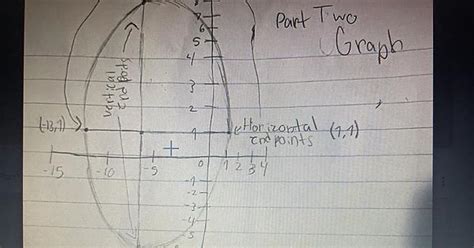 Part Two
Graph
7
6
5
4
3
2
1
vertical
endpoints
(-13,1)
Horizontal
endpoints (1,1)
-15
-10
-5
0
1
2
3
4
-1
-2
-3
-4
-5